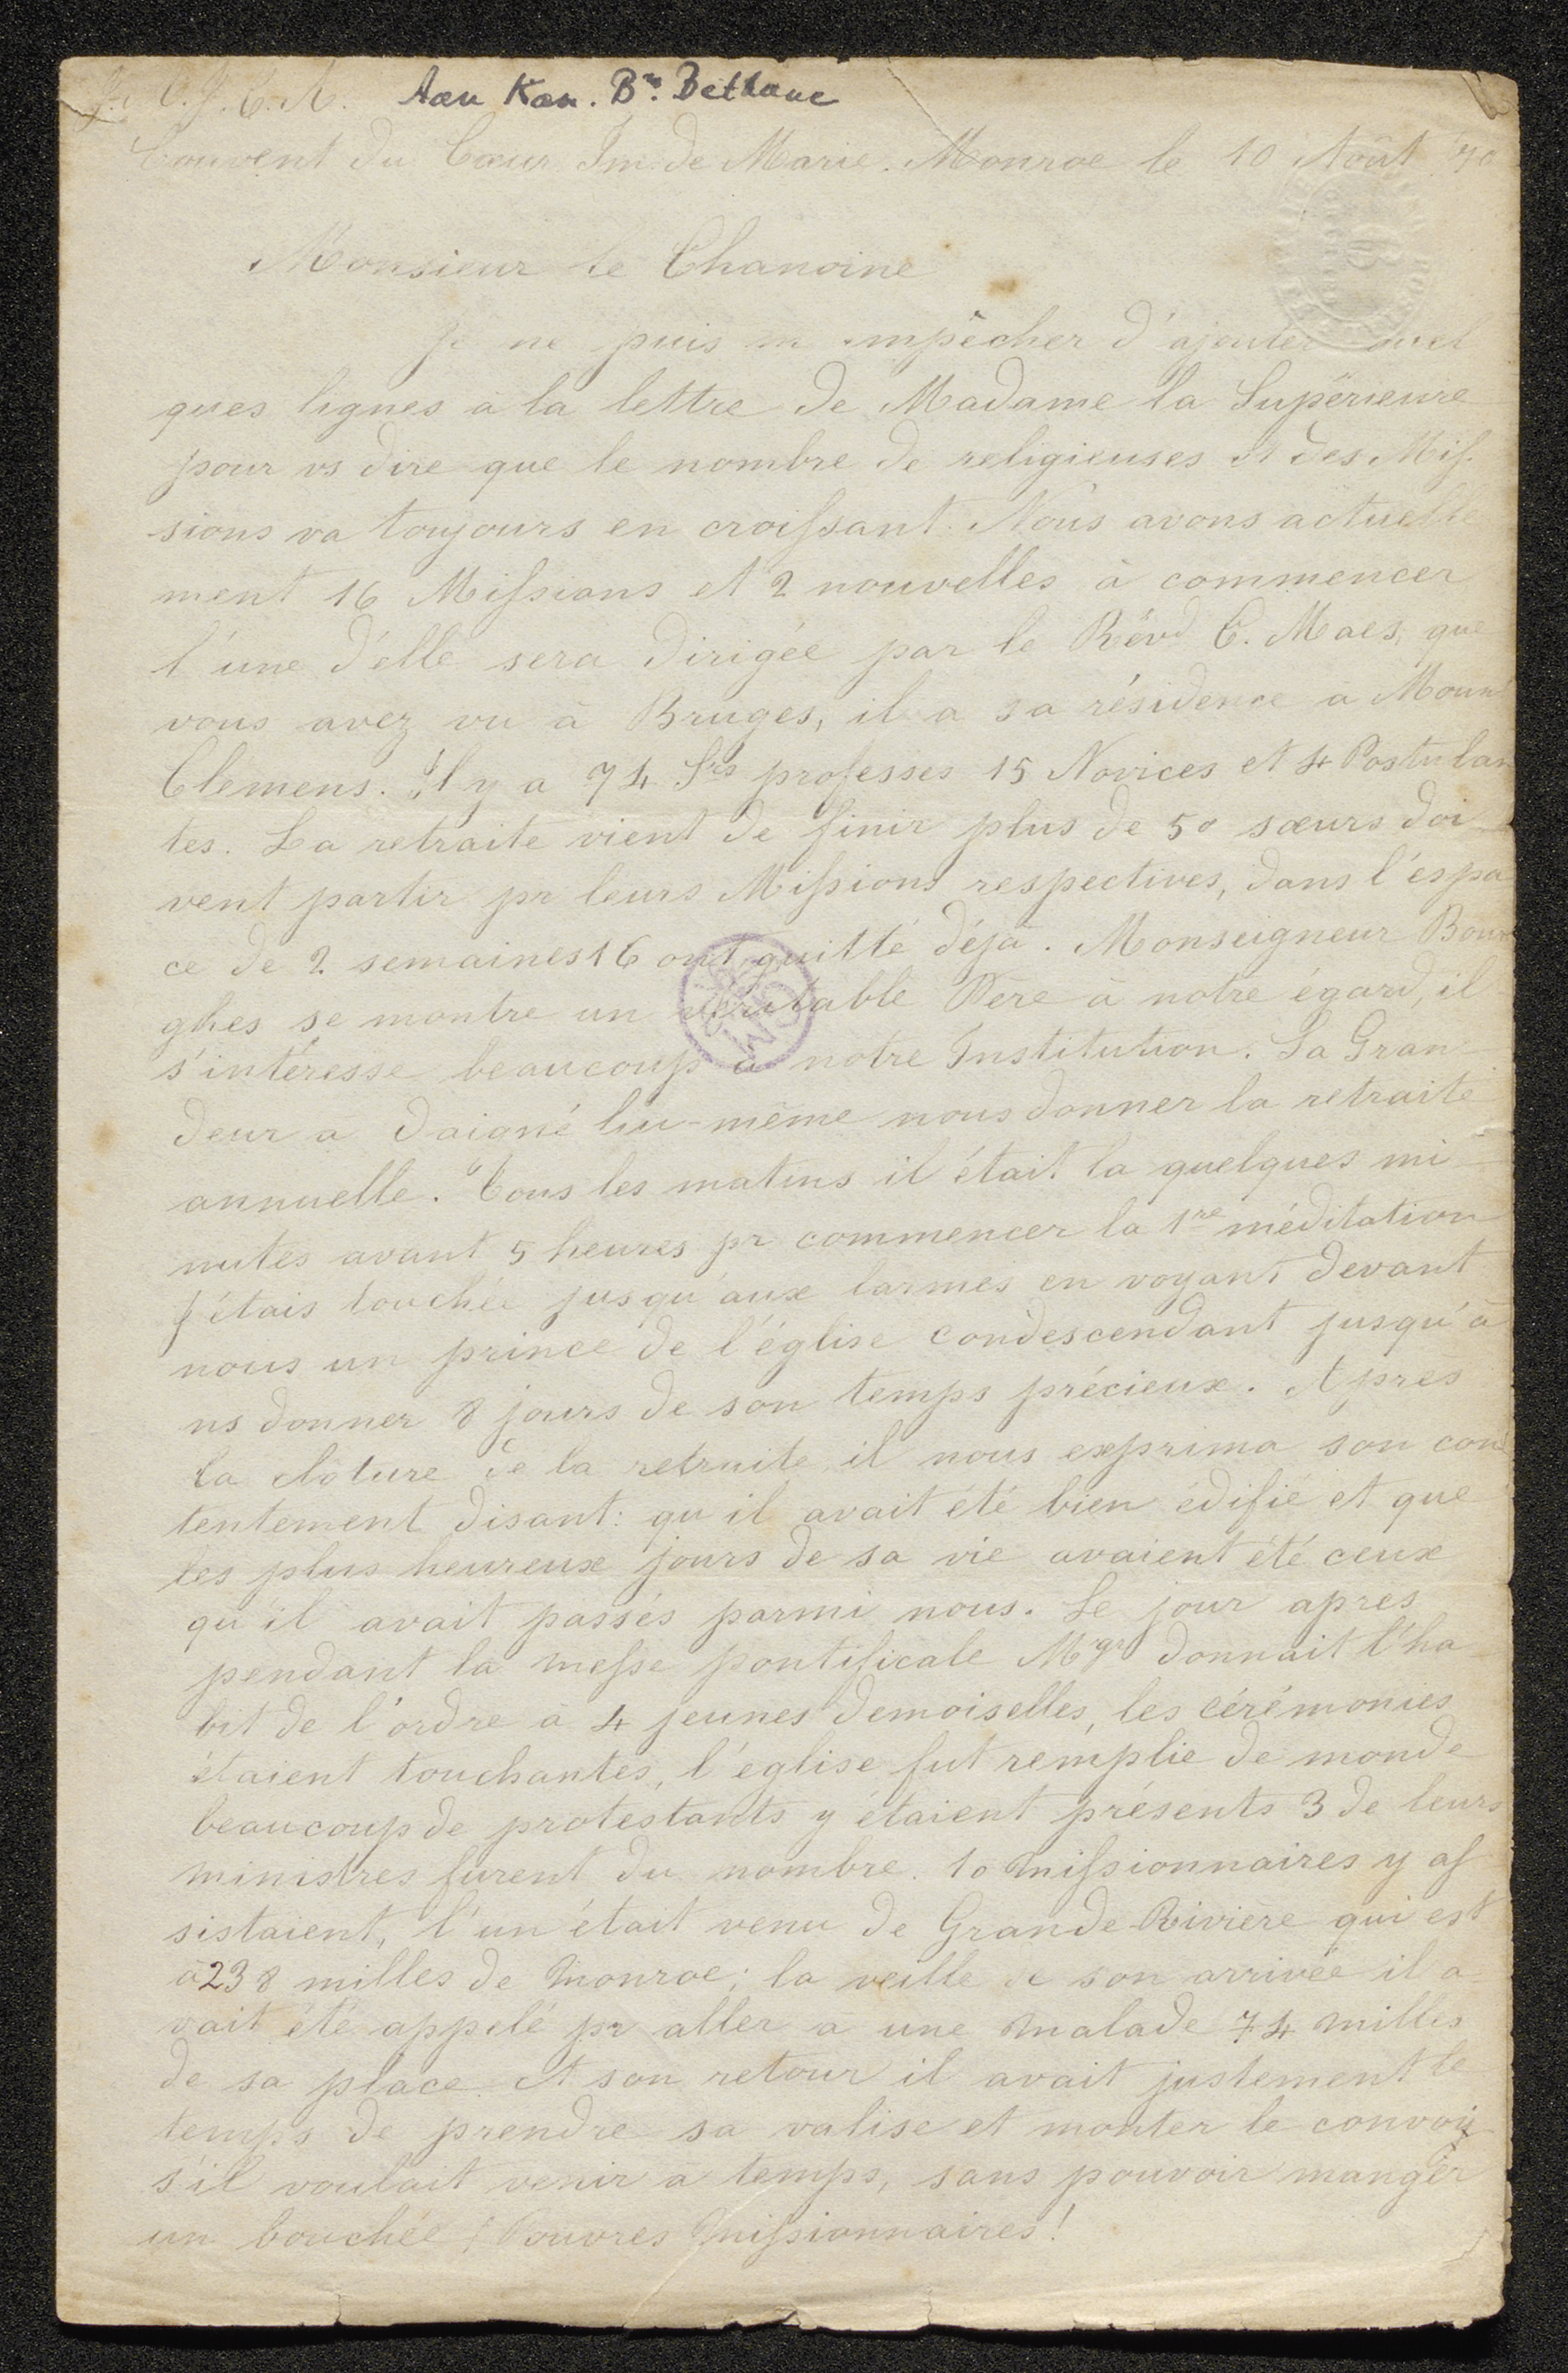 J. C. J. C. A. Aan Kan. Bn. Bethune
Couvent du Cœur Im. de Marie. Monroe le 10 Août 70
Monsieur le Chanoine
Je ne puis m'empêcher d'ajouter quel
ques lignes à la lettre de Madame la Supérieure
pour vs dire que le nombre de religieuses et des Mis
sions va toujours en croissant. Nous avons actuelle
ment 16 Missions et 2 nouvelles à commencer
l'une d'elle sera dirigée par le Révd C. Maes, que
vous avez vu à Bruges, il a sa résidence à Moun
Clemens. Il y a 74 Srs professes 15 Novices et 4 Postulan
tes. La retraite vient de finir plus de 50 sœurs doi
vent partir pr leurs Missions respectives, dans l'espa
ce de 2 semaines 16 ont quitté déjà. Monseigneur Bour
ghes se montre un véritable Père à notre égard, il
s'intéresse beaucoup à notre Institution. Sa Gran
deur a daigné lui-même nous donner la retraite
annuelle. Tous les matins il était la quelques mi
nutes avant 5 heures pr commencer la 1re méditation
J'étais touchée jusqu'aux larmes en voyant devant
nous un prince de l'église condescendant jusqu'à
ns donner 8 jours de son temps précieux. Après
la clôture de la retraite il nous exprima son con
tentement disant: qu'il avait été bien édifié et que
les plus heureux jours de sa vie avaient été ceux
qu'il avait passés parmi nous. Le jour apres
pendant la messe pontificale Mgr donnait l'ha
bit de l'ordre à 4 jeunes demoiselles, les cérémonies
étaient touchantes, l'église fut remplie de monde
beaucoup de protestants y étaient présents 3 de leurs
ministres furent du nombre. 10 missionnaires y as
sistaient, l'un était venu de Grande-Rivière qui est
à 238 milles de Monroe; la veille de son arrivée il a
vait été appelé pr aller à une malade 74 milles
de sa place. A son retour il avait justement le
temps de prendre sa valise et monter le convoi
s'il voulait venir à temps, sans pouvoir manger
un bouchée! Pouvres Missionnaires!